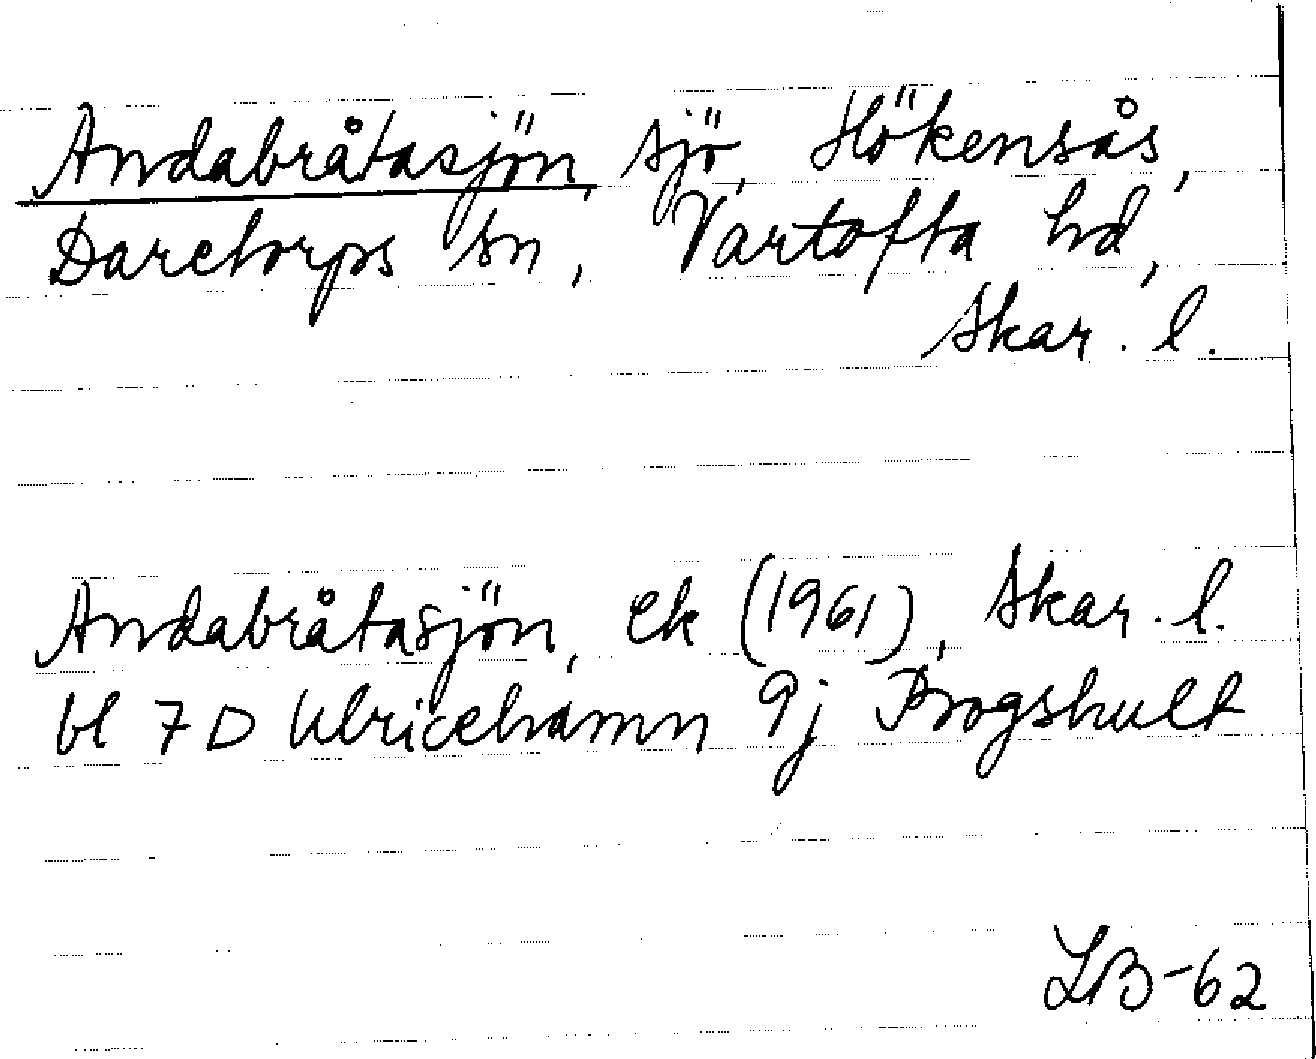 Andabråtasjön, sjö, Hökensås,
Daretorps sn, Vartofta hd,
Skar. l.
Andabråtasjön, ek (1961), Skar. l.
bl 7D Ulricehamn 9j Progshult
LB-62